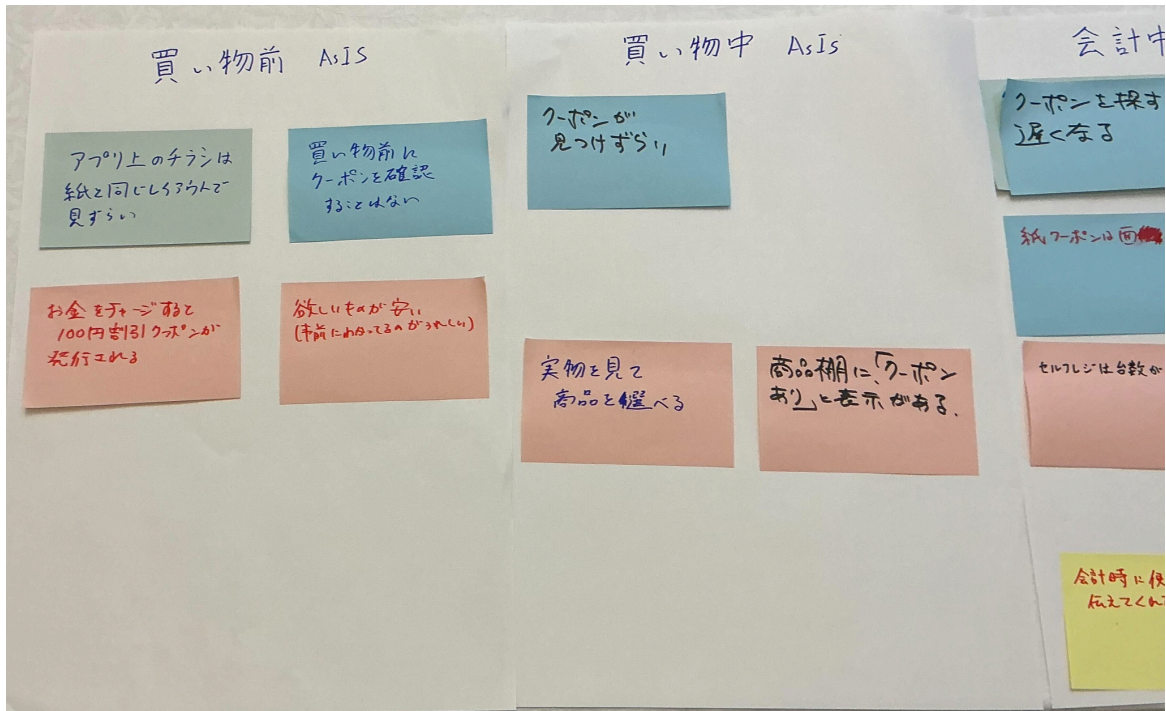 買い物前 AsIS
アプリ上のチラシは
紙と同じレイアウトで
見ずらい
買い物前に
クーポンを確認
することはない
お金をチャージすると
100円割引クーポンが
発行される
欲しいものが安い
(事前にわかってるのがうれしい)
買い物中 AsIs
クーポンが
見つけずらい
実物を見て
商品を選べる
商品棚に、「クーポン
あり」と表示がある.
会計中
クーポンを探す
遅くなる
紙クーポンは面
セルフレジは台数が
会計時に使
伝えてくれ